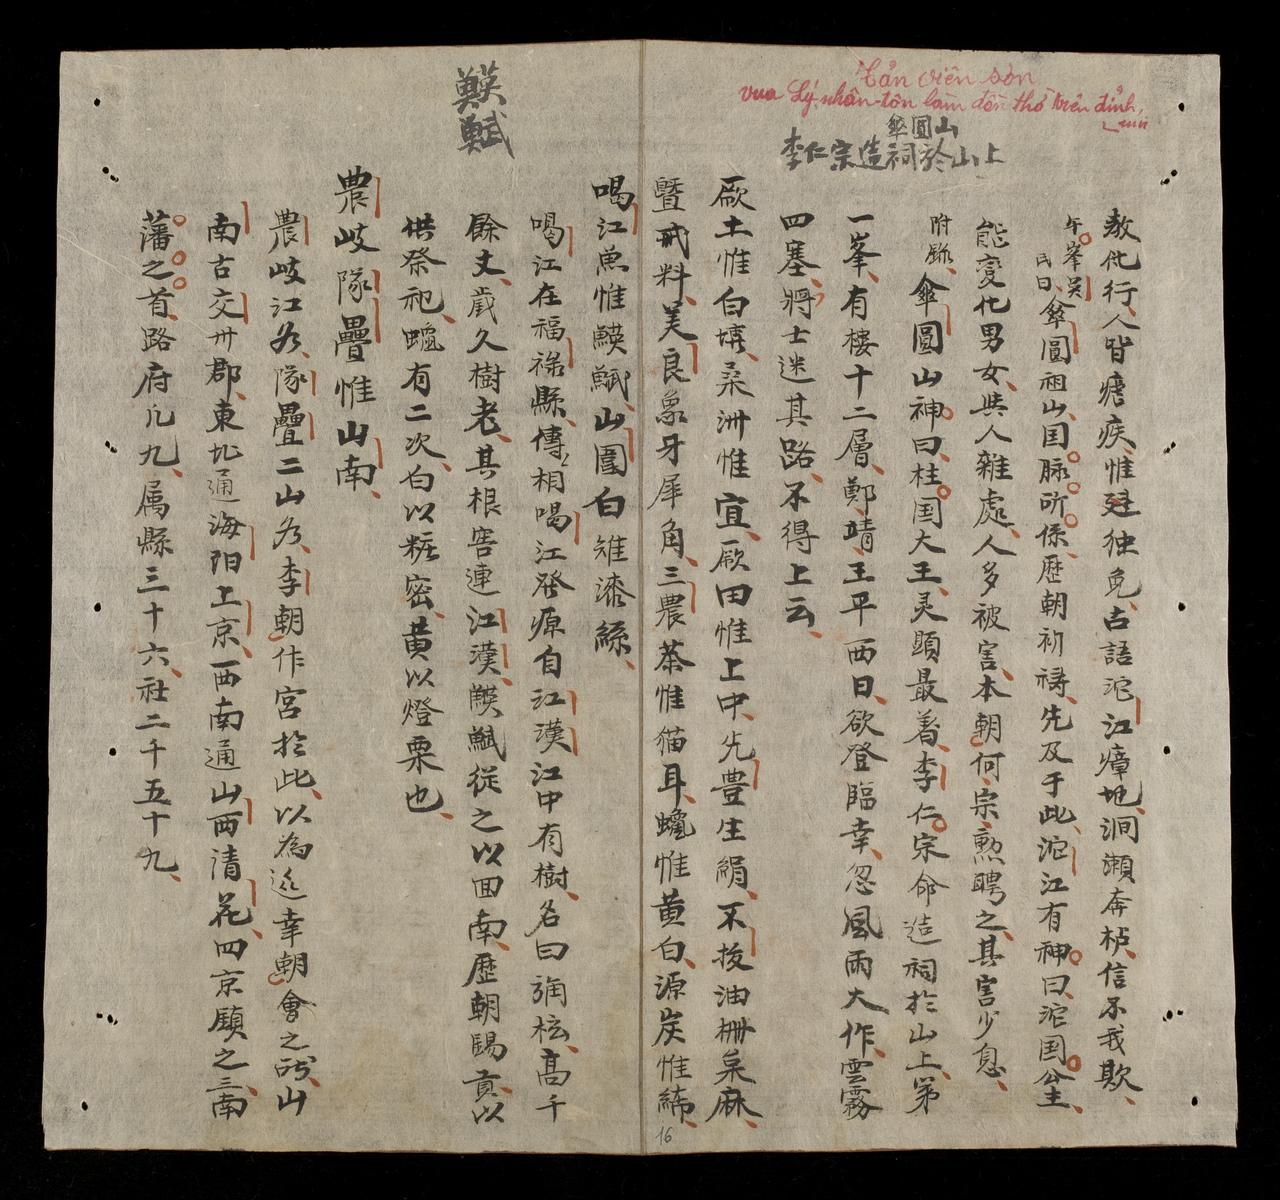 Tản viên sơn
vua Lý nhân-tôn làm đền thờ trên đỉnh
núi
傘圓山
李仁宗造祠於山上
敖他行人皆瘧疾、惟廷独免、古語沱江瘴地、洞瀬奔 信不我欺、
午峯吴氏曰、傘圓祖山、国脉所係、歷朝初禱、先及于此、沱江有神曰、沱国公主、
能变化男女、共人雜處、人多被害、本朝何宗勲聘之、其害少息、
附録、傘圓山神曰、柱国大王、灵顕最着、李仁宗命造祠於山上、第
一峯、有樓十二層、鄭靖王平西日、欲登臨幸、忽風雨大作、雲霧
四塞、将士迷其路、不得上云、
厥土惟白墳、桑洲惟宜、厥田惟上中、先豊生絹、不拔油柵枲麻、
暨 料、美良象牙犀角、三農茶惟猫耳、蠟惟黄白、源炭惟絺、
喝江魚惟䱻鯎、山圍白雉漆絲、
喝江在福禄縣、傳相喝江發源自江漢江中有樹、名曰 、高千
餘丈、歲久樹老、其根害連江漢、䱻鯎従之以囬南、歷朝賜貢以
供祭祀、蠟有二次、白以粧密、黄以燈栗也、
䱻鯎
農岐隊疊惟山南、
農岐江名、隊疊二山名、李朝作宮於此、以為巡幸朝會之所、山
南古交州郡、東北通海阳上京、西南通山西清花、四京鎮之三、南
藩之首、路府凡九、属縣三十六、社二千五十九、
16